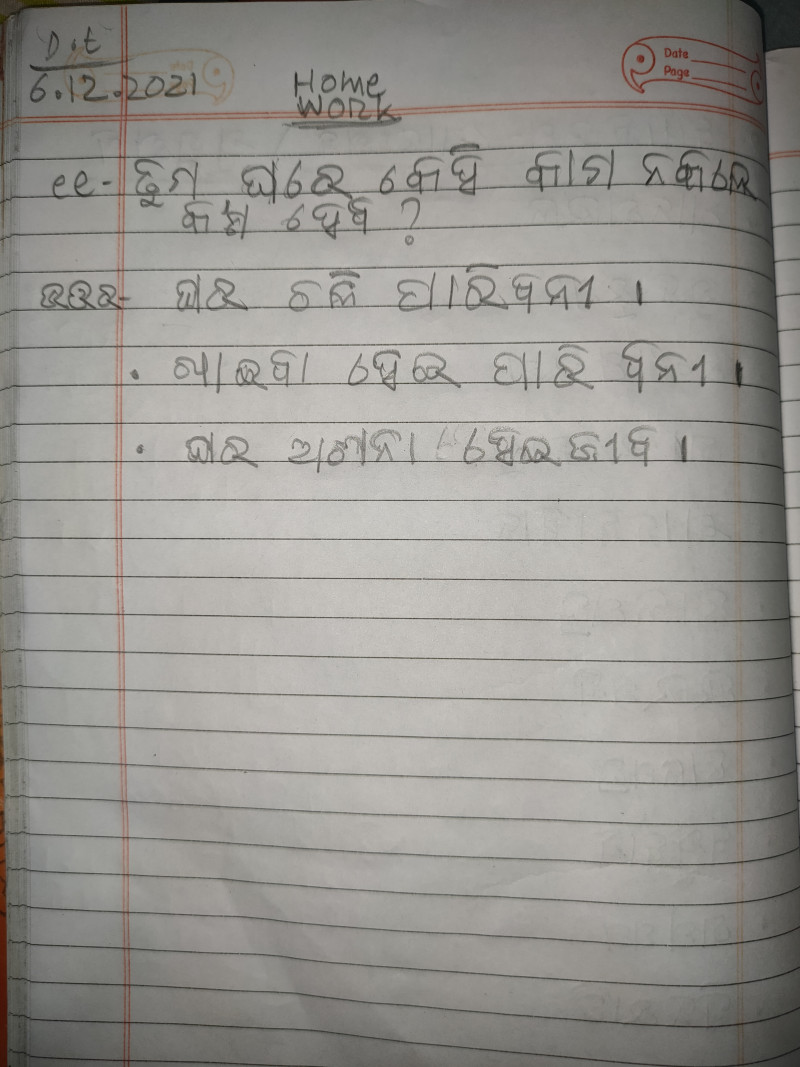 D.t
6.12.2021
Date
Page
Home
WORK
ee- ତୁମ ଘରେ କେହି କାମ ନକଲେ
କଣ ହେବ ?
ଉଉର- ଘର ଚଳି ପାରିବନୀ ।
• ଖାଇବା ହେଇ ପାରି ବନୀ ।
• ଘର ଅଶନା ହେଇଜୀବ ।